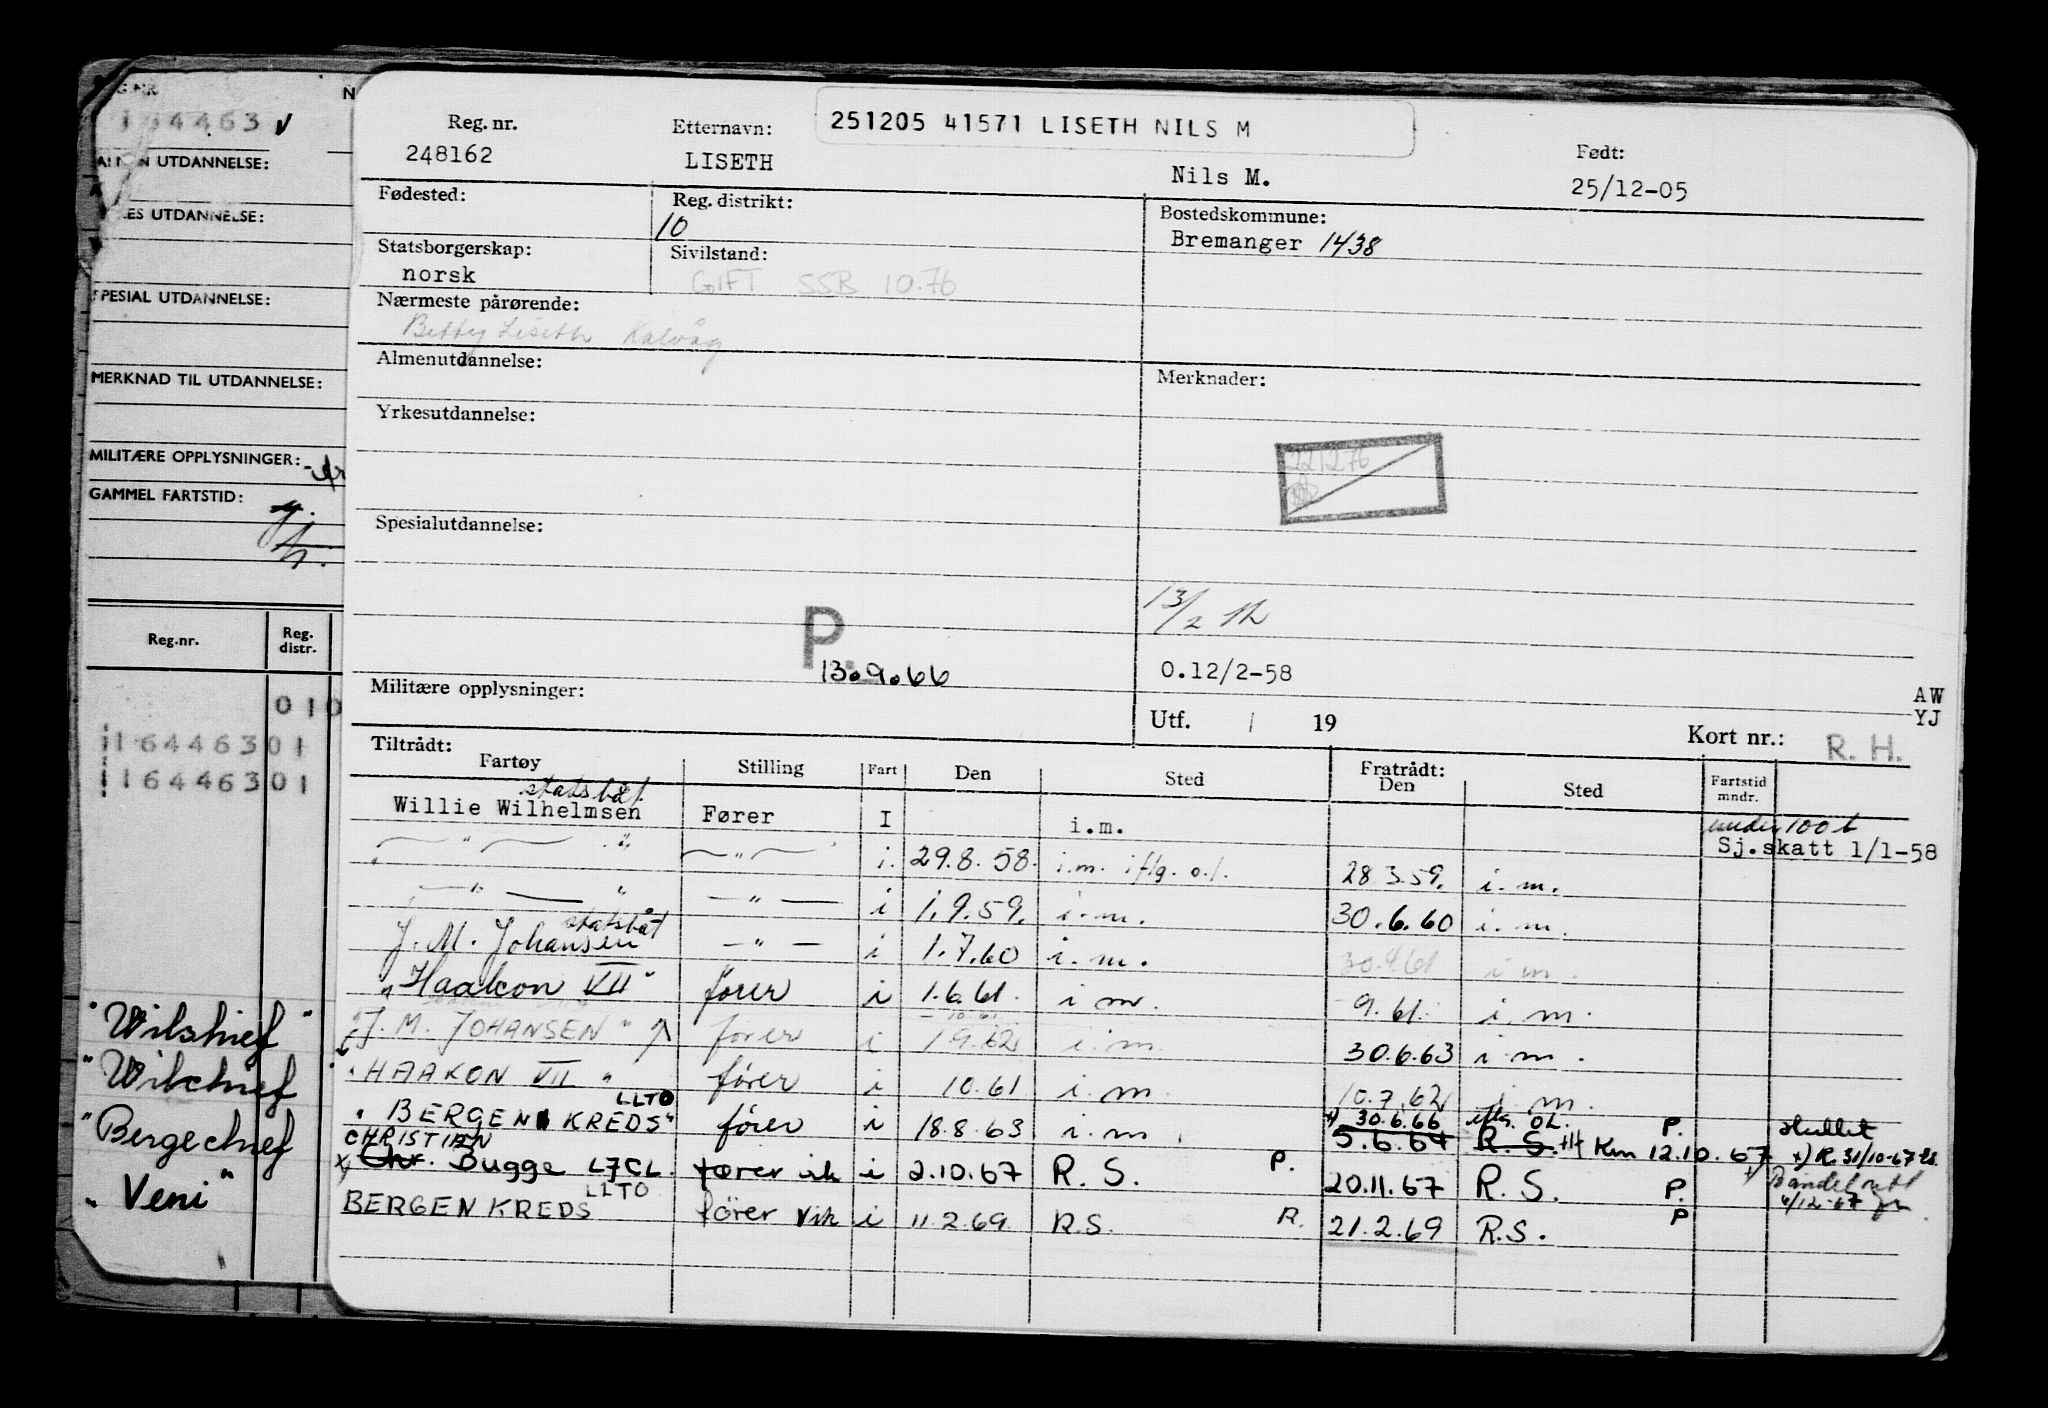 164463 V
UTDANNELSE:
UTDANNELSE:
SPESIAL UTDANNELSE:
MERKNAD TIL UTDANNELSE:
MILITÆRE OPPLYSNINGER:
GAMMEL FARTSTID:
Reg.nr. Reg. distr.
010
116446301
116446301
"Wilshief"
"Wilchief
"Bergechief
"Veni"
Reg. nr. Etternavn: 251205 41571 LISETH NILS M Født:
248162 LISETH Nils M. 25/12-05
Fødested: Reg. distrikt: Bostedskommune:
10 Bremanger 1438
Statsborgerskap: Sivilstand:
norsk GIFT SSB 10.76
Nærmeste pårørende:
Betty Liseth Kalvåg
Almenutdannelse: Merknader:
Yrkesutdannelse:
221276
Spesialutdannelse:
13/2
P.
13.9.66 0.12/2-58
Militære opplysninger: AW
Utf. / 19 YJ
Kort nr.: R. H.
Tiltrådt: Fratrådt:
Fartøy Stilling Fart Den Sted Den Sted Fartstid mndr.
statsbåt under 100 t
Willie Wilhelmsen Fører I i.m. Sj.skatt 1/1-58
" " " i. 29.8.58. i.m. iflg. o.l. 28.3.59. i.m.
" " " i 1.9.59. i.m. 30.6.60 i.m.
statsbåt
J. M. Johansen " i 1.7.60 i.m. 30.4.61 i.m.
"Haakon VII" fører i 1.6.61. i m. 9.61. i.m.
10.61
"J. M. JOHANSEN" fører i 1.9.62 i.m. 30.6.63 i m.
"HAAKON VII" fører i 10.61 i.m. 10.7.62 i.m.
LLTO 30.6.66 OL.
"BERGEN KREDS" fører i 18.8.63 i.m. 5.6.64 R. S. P. 12.10.67 +) R. 31/10-67
CHRISTIAN
x) Chr. Bugge LJCL fører i 2.10.67 R. S. P. 20.11.67 R. S. P. 4/12-67
LLTO
BERGEN KREDS fører vik i 11.2.69. R.S. R. 21.2.69 R.S. P